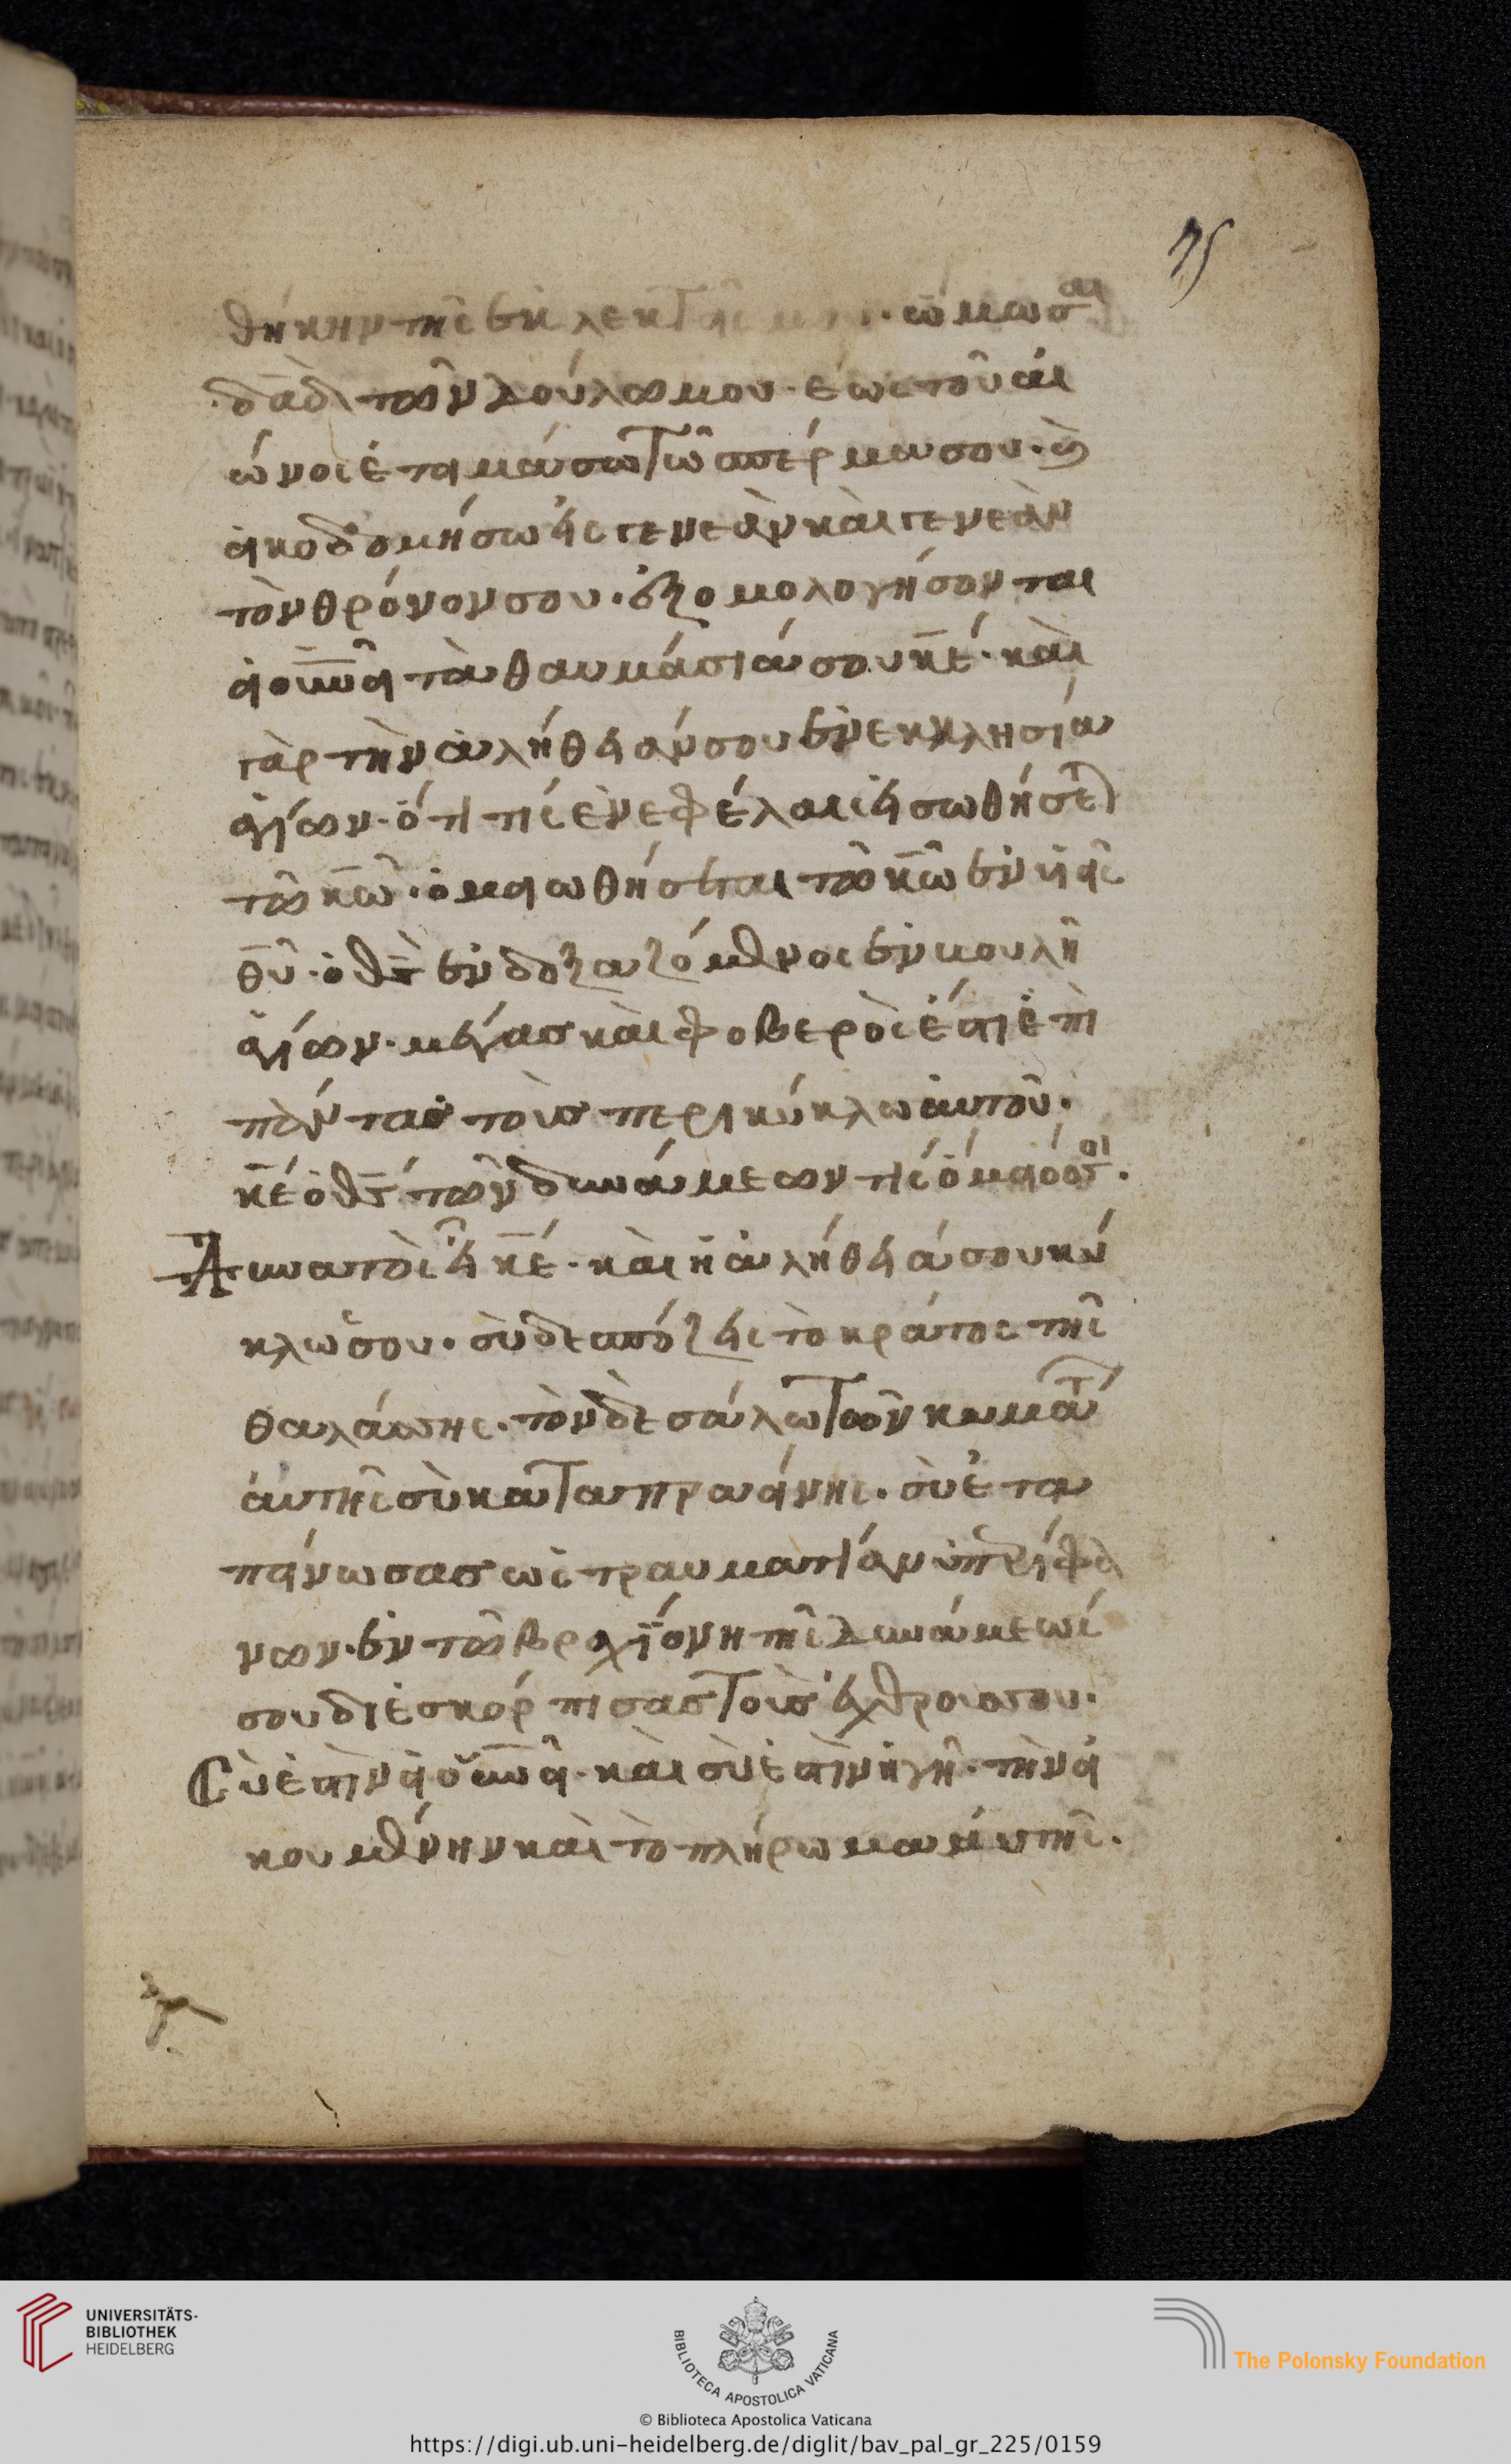 75
θήκην τῆς ἐκλεκτῆς μου. ὤμωσα
δᾱδ τῶν δούλω μου. ἕως τοῦ αἰ
ώνος ἑτοιμάσω τῶ σπέρμα σου. καὶ
οικοδομήσω εἰς γενεὰν καὶ γενεὰν
τὸν θρόνον σου. ἐξομολογήσονται
οἱ οὐνοῖ τὰ θαυμάσιά σου κε̄. καὶ
γὰρ τὴν ἀλήθειάν σου ἐν εκκλησία
ἁγίων. ὅτι τίς ἐν εφέλαις εἰσωθήσετ
τῶ κω̄. ὁμοιωθήσεται τῶ κω̄ ἐν υἱοῖς
θῡ. ὁ θς̄ ἐνδοξαζόμενος ἐν βουλῆ
ἁγίων. μέγας καὶ φοβερὸς ἐστι ἐπὶ
πάντας τοὺς περικύκλω αὐτοῦ.
κε̄ ὁ θς̄ τῶν δυνάμεων τίς ὅμοιός σοι.
Δυνατὸς εἶ κε̄. καὶ ἡ ἀλήθειά σου κύ
κλω σου. σὺ δεσπόζεις τὸ κράτος τῆς
θαλάσσης. τὸν δὲ σάλω τῶν κυμάτ
αὐτῆς σὺ καταπραύνης. σὺ ἐτα
πείνωσας ὡς τραυματίαν ὑπερίφα
νων. ἐν τῶ βραχϊόνη τῆς δυνάμεώς
σου διεσκόρπισας τοὺς ἐχθρους σου.
Σύ ἐστιν οἱ οὐνοῖ. καὶ σύ ἐστιν ἡ γῆ. τὴν οἰ
κουμένην καὶ τὸ πλήρωμα αὐτῆς.
UNIVERSITÄTS-
BIBLIOTHEK
HEIDELBERG
BIBLIOTECA APOSTOLICA VATICANA
The Polonsky Foundation
© Biblioteca Apostolica Vaticana
https://digi.ub.uni-heidelberg.de/diglit/bav_pal_gr_225/0159